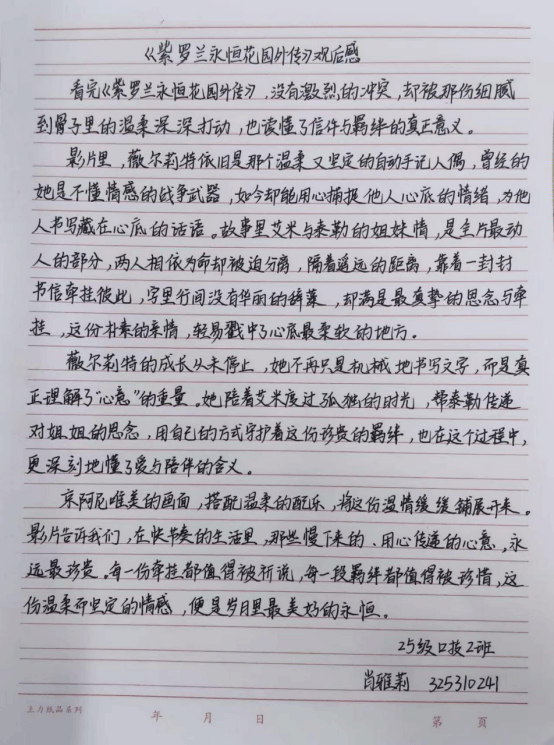 《紫罗兰永恒花园外传》观后感
看完《紫罗兰永恒花园外传》，没有激烈的冲突，却被那份细腻
到骨子里的温柔深深打动，也读懂了信件与羁绊的真正意义。
影片里，薇尔莉特依旧是那个温柔又坚定的自动手记人偶，曾经的
她是不懂情感的战争武器，如今却能用心捕捉他人心底的情绪，为他
人书写藏在心底的话语。故事里艾米与泰勒的姐妹情，是全片最动
人的部分，两人相依为命却被迫分离，隔着遥远的距离，靠着一封封
书信牵挂彼此，字里行间没有华丽的辞藻，却满是最真挚的思念与牵
挂，这份朴素的亲情，轻易戳中了心底最柔软的地方。
薇尔莉特的成长从未停止，她不再只是机械地书写文字，而是真
正理解了“心意”的重量。她陪着艾米度过孤独的时光，帮泰勒传递
对姐姐的思念，用自己的方式守护着这份珍贵的羁绊，也在这个过程中，
更深刻地懂了爱与陪伴的含义。
京阿尼唯美的画面，搭配温柔的配乐，将这份温情缓缓铺展开来。
影片告诉我们，在快节奏的生活里，那些慢下来的、用心传递的心意，永
远最珍贵。每一份牵挂都值得被诉说，每一段羁绊都值得被珍惜，这
份温柔而坚定的情感，便是岁月里最美好的永恒。
25级口技2班
肖雅莉 325310241
立力纸品系列
年 月 日
第 页